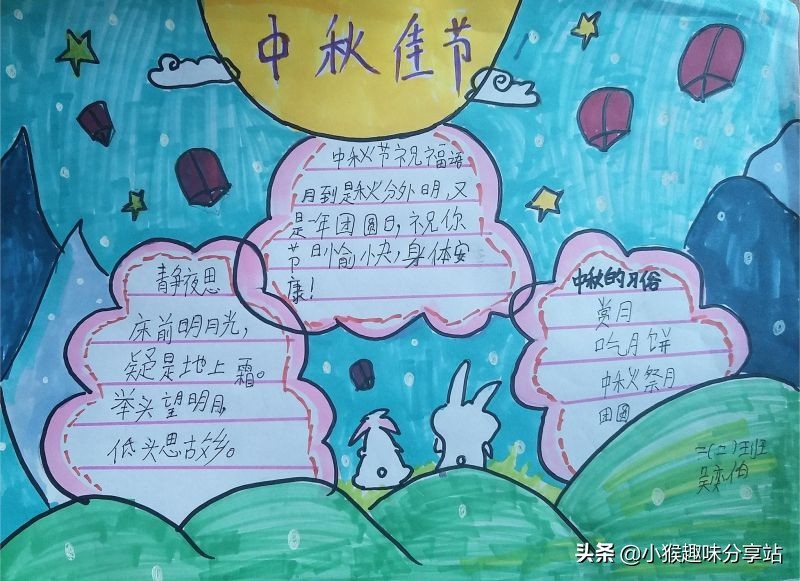 中秋佳节
中秋节祝福语
月到是秋分外明,又
是一年团圆日,祝你
节日愉快,身体安
康!
静夜思
床前明月光,
疑是地上霜。
举头望明月,
低头思故乡。
中秋的习俗
赏月
吃月饼
中秋祭月
团圆
二(二)班
头条 @小猴趣味分享站